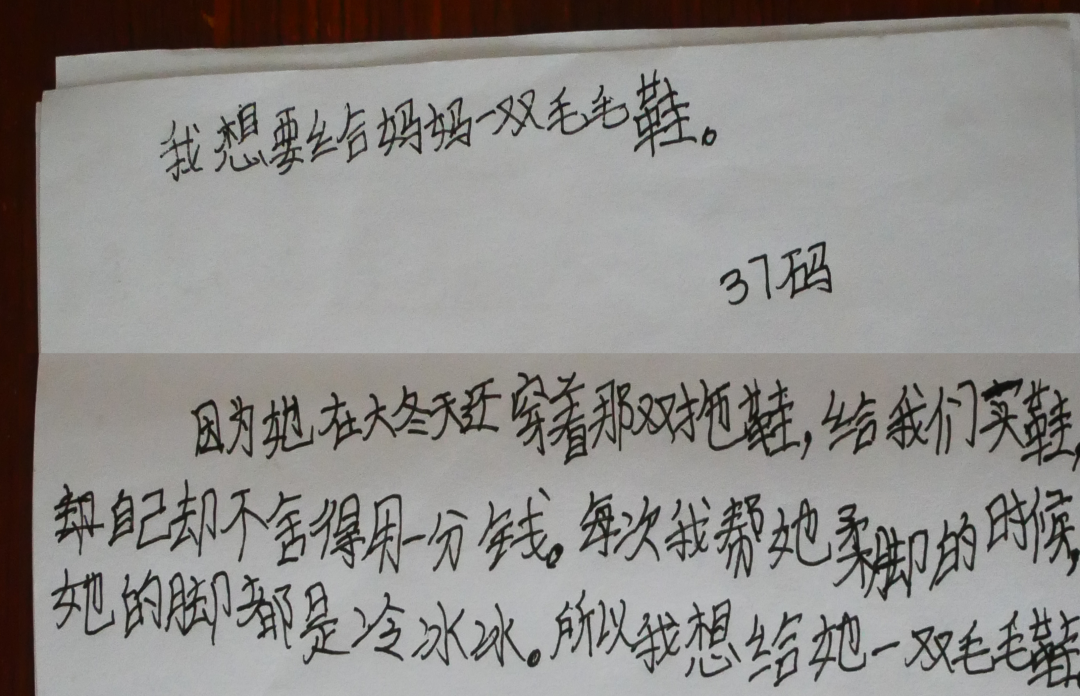 我想要给妈妈一双毛毛鞋。
37码
因为她在大冬天还穿着那双拖鞋,给我们买鞋,
自己却不舍得用一分钱。每次我帮她柔脚的时候,
她的脚都是冷冰冰。所以我想给她一双毛毛鞋